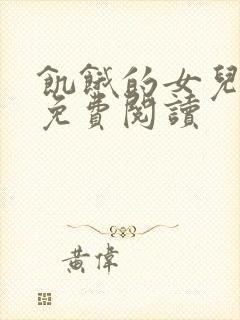 飢餓的女兒
免費閱讀
黃偉